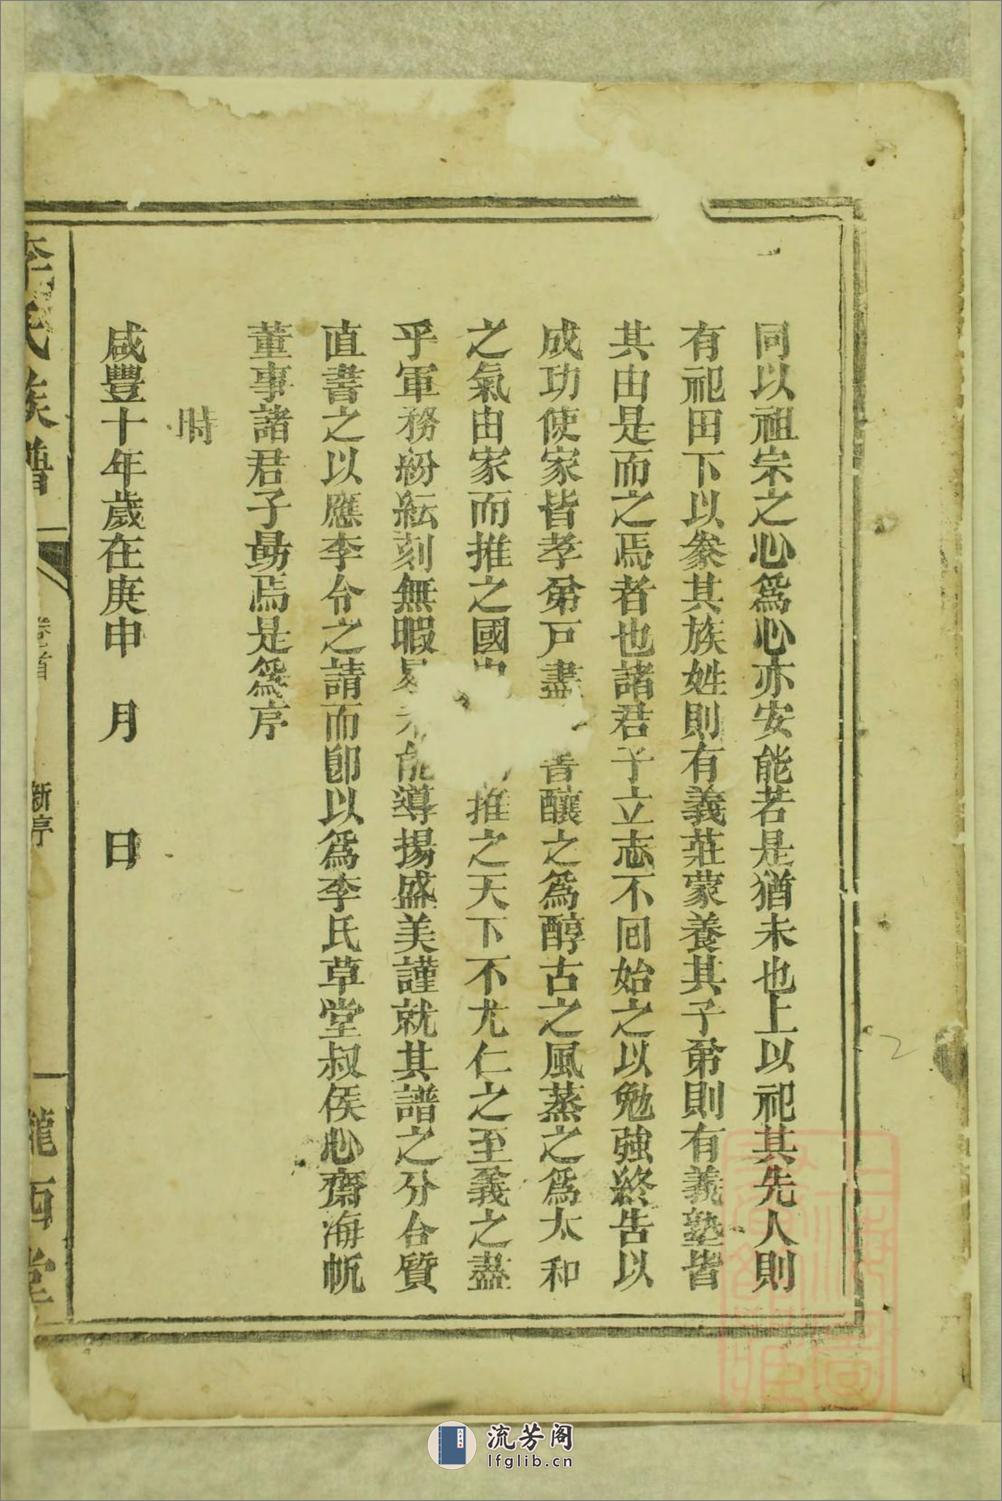 同以祖宗之心爲心亦安能若是猶未也上以祀其先人則
有祀田下以叅其族姓則有義莊蒙養其子弟則有義塾皆
其由是而之焉者也諸君子立志不回始之以勉強終告以
成功使家皆孝弟戸盡善釀之爲醇古之風蒸之爲太和
之氣由家而推之國推之天下不尤仁之至義之盡
乎軍務紛紜刻無暇晷未能導揚盛美謹就其譜之分合質
直書之以應李令之請而卽以爲李氏草堂叔侯心齋海帆
董事諸君子勗焉是爲序
時
咸豐十年歲在庚申 月 日
李氏族譜 卷首 新序 隴西堂
流芳阁
lfglib.cn